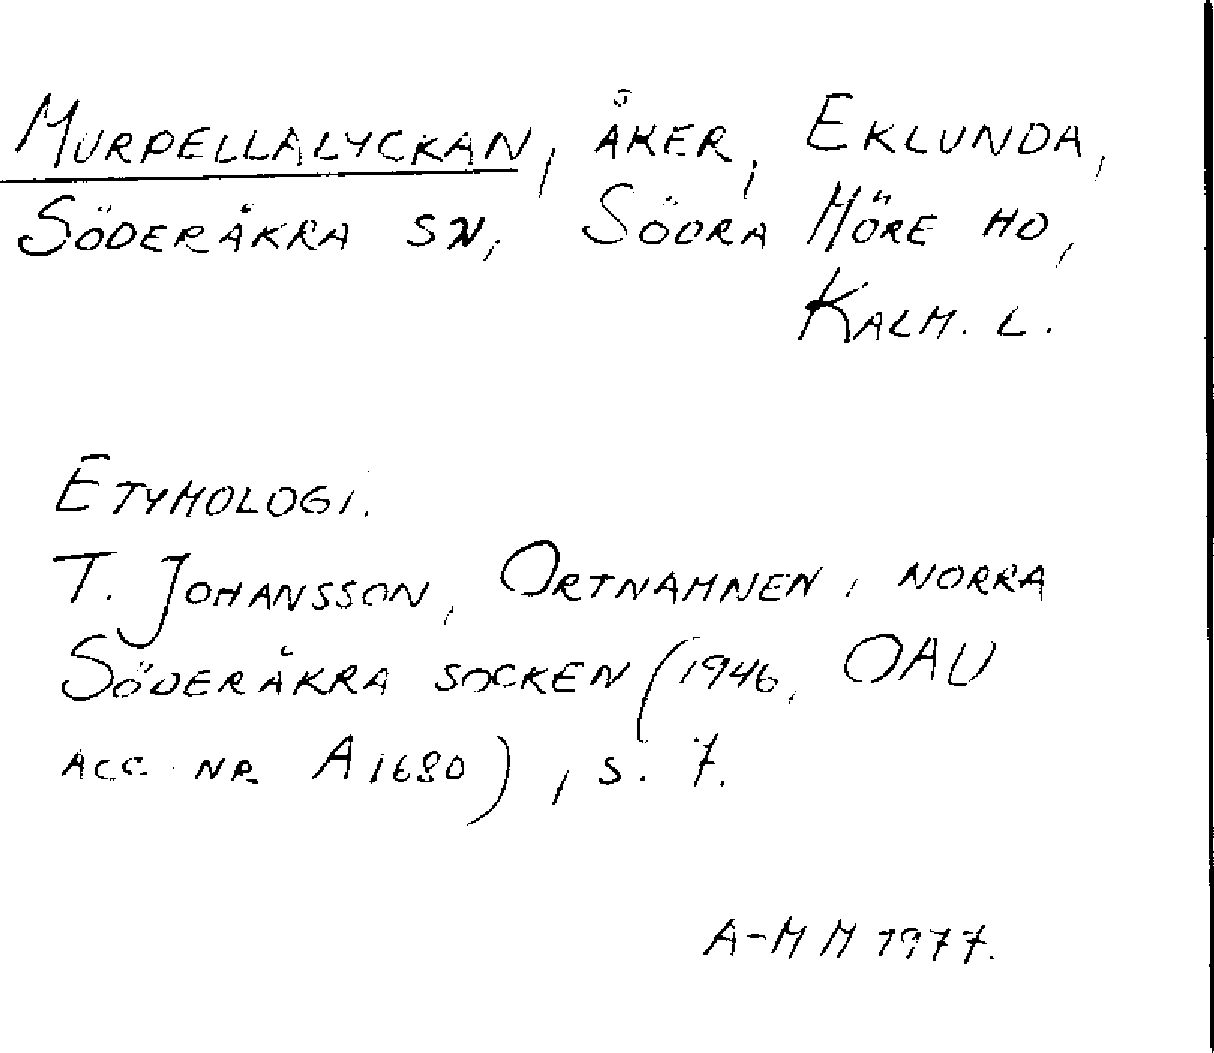 MURPELLALYCKAN, ÅKER, EKLUNDA,
SÖDERÅKRA SN, SÖDRA MÖRE HD,
KALM. L.
ETYMOLOGI.
T. JOHANSSON, ORTNAMNEN I NORRA
SÖDERÅKRA SOCKEN (1946, OAU
ACC NR A1680), S. 7.
A-M M 1977.